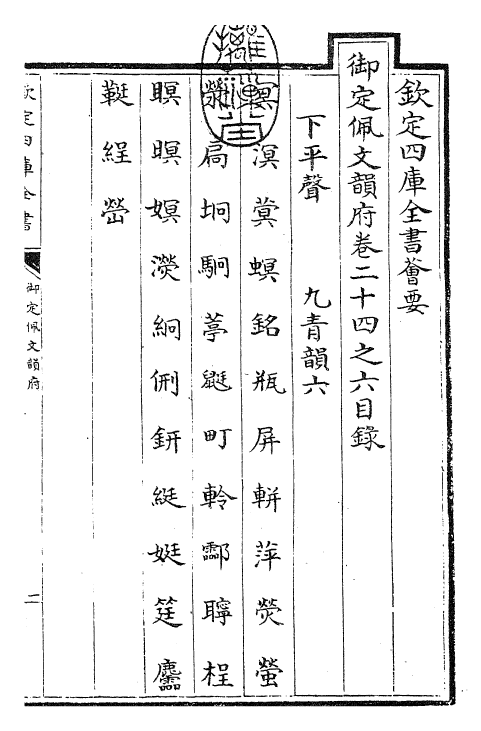 欽定四庫全書薈要
御定佩文韻府卷二十四之六目錄
下平聲 九青韻六
冥溟蓂螟銘瓶屏軿萍熒螢
滎扃坰駉葶鼮町軨酃聹桯
瞑暝嫇濴絅侀鈃綎娗筳麢
鞓綎嶨
欽定四庫全書
御定佩文韻府
二